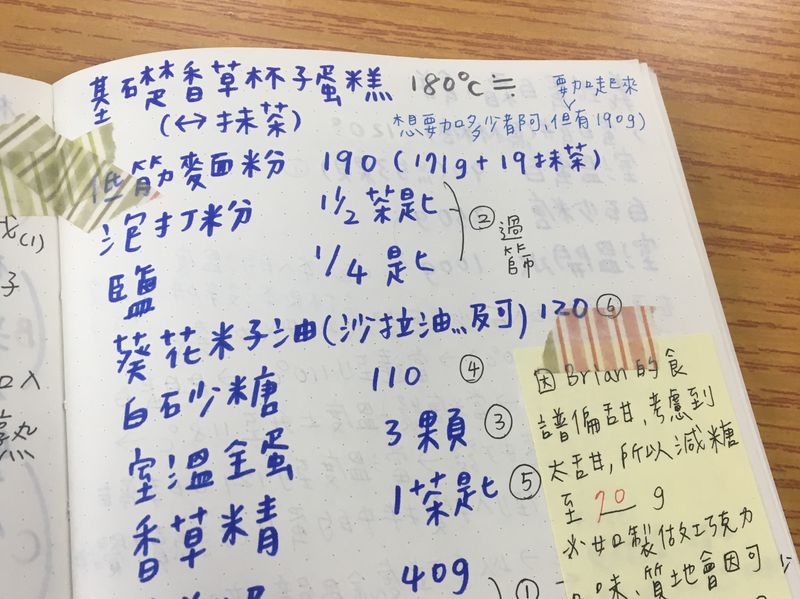 基礎香草杯子蛋糕 180°C≒
要加起來
(↔抹茶)
想要加多少都可，但有190g)
低筋麥面粉 190 (171g + 19抹茶)
泡打粉 1/2 茶匙
② 過篩
鹽 1/4 匙
葵花籽油(沙拉油...及可) 120 ⑥
白砂糖 110 ④
室溫全蛋 3顆 ③
香草精 1茶匙 ⑤
40g ①
因Brian的食
譜偏甜，考慮到
太甜，所以減糖
至 70 g
必如製做巧克力
口味，質地會因可
(1)
子
入
熟